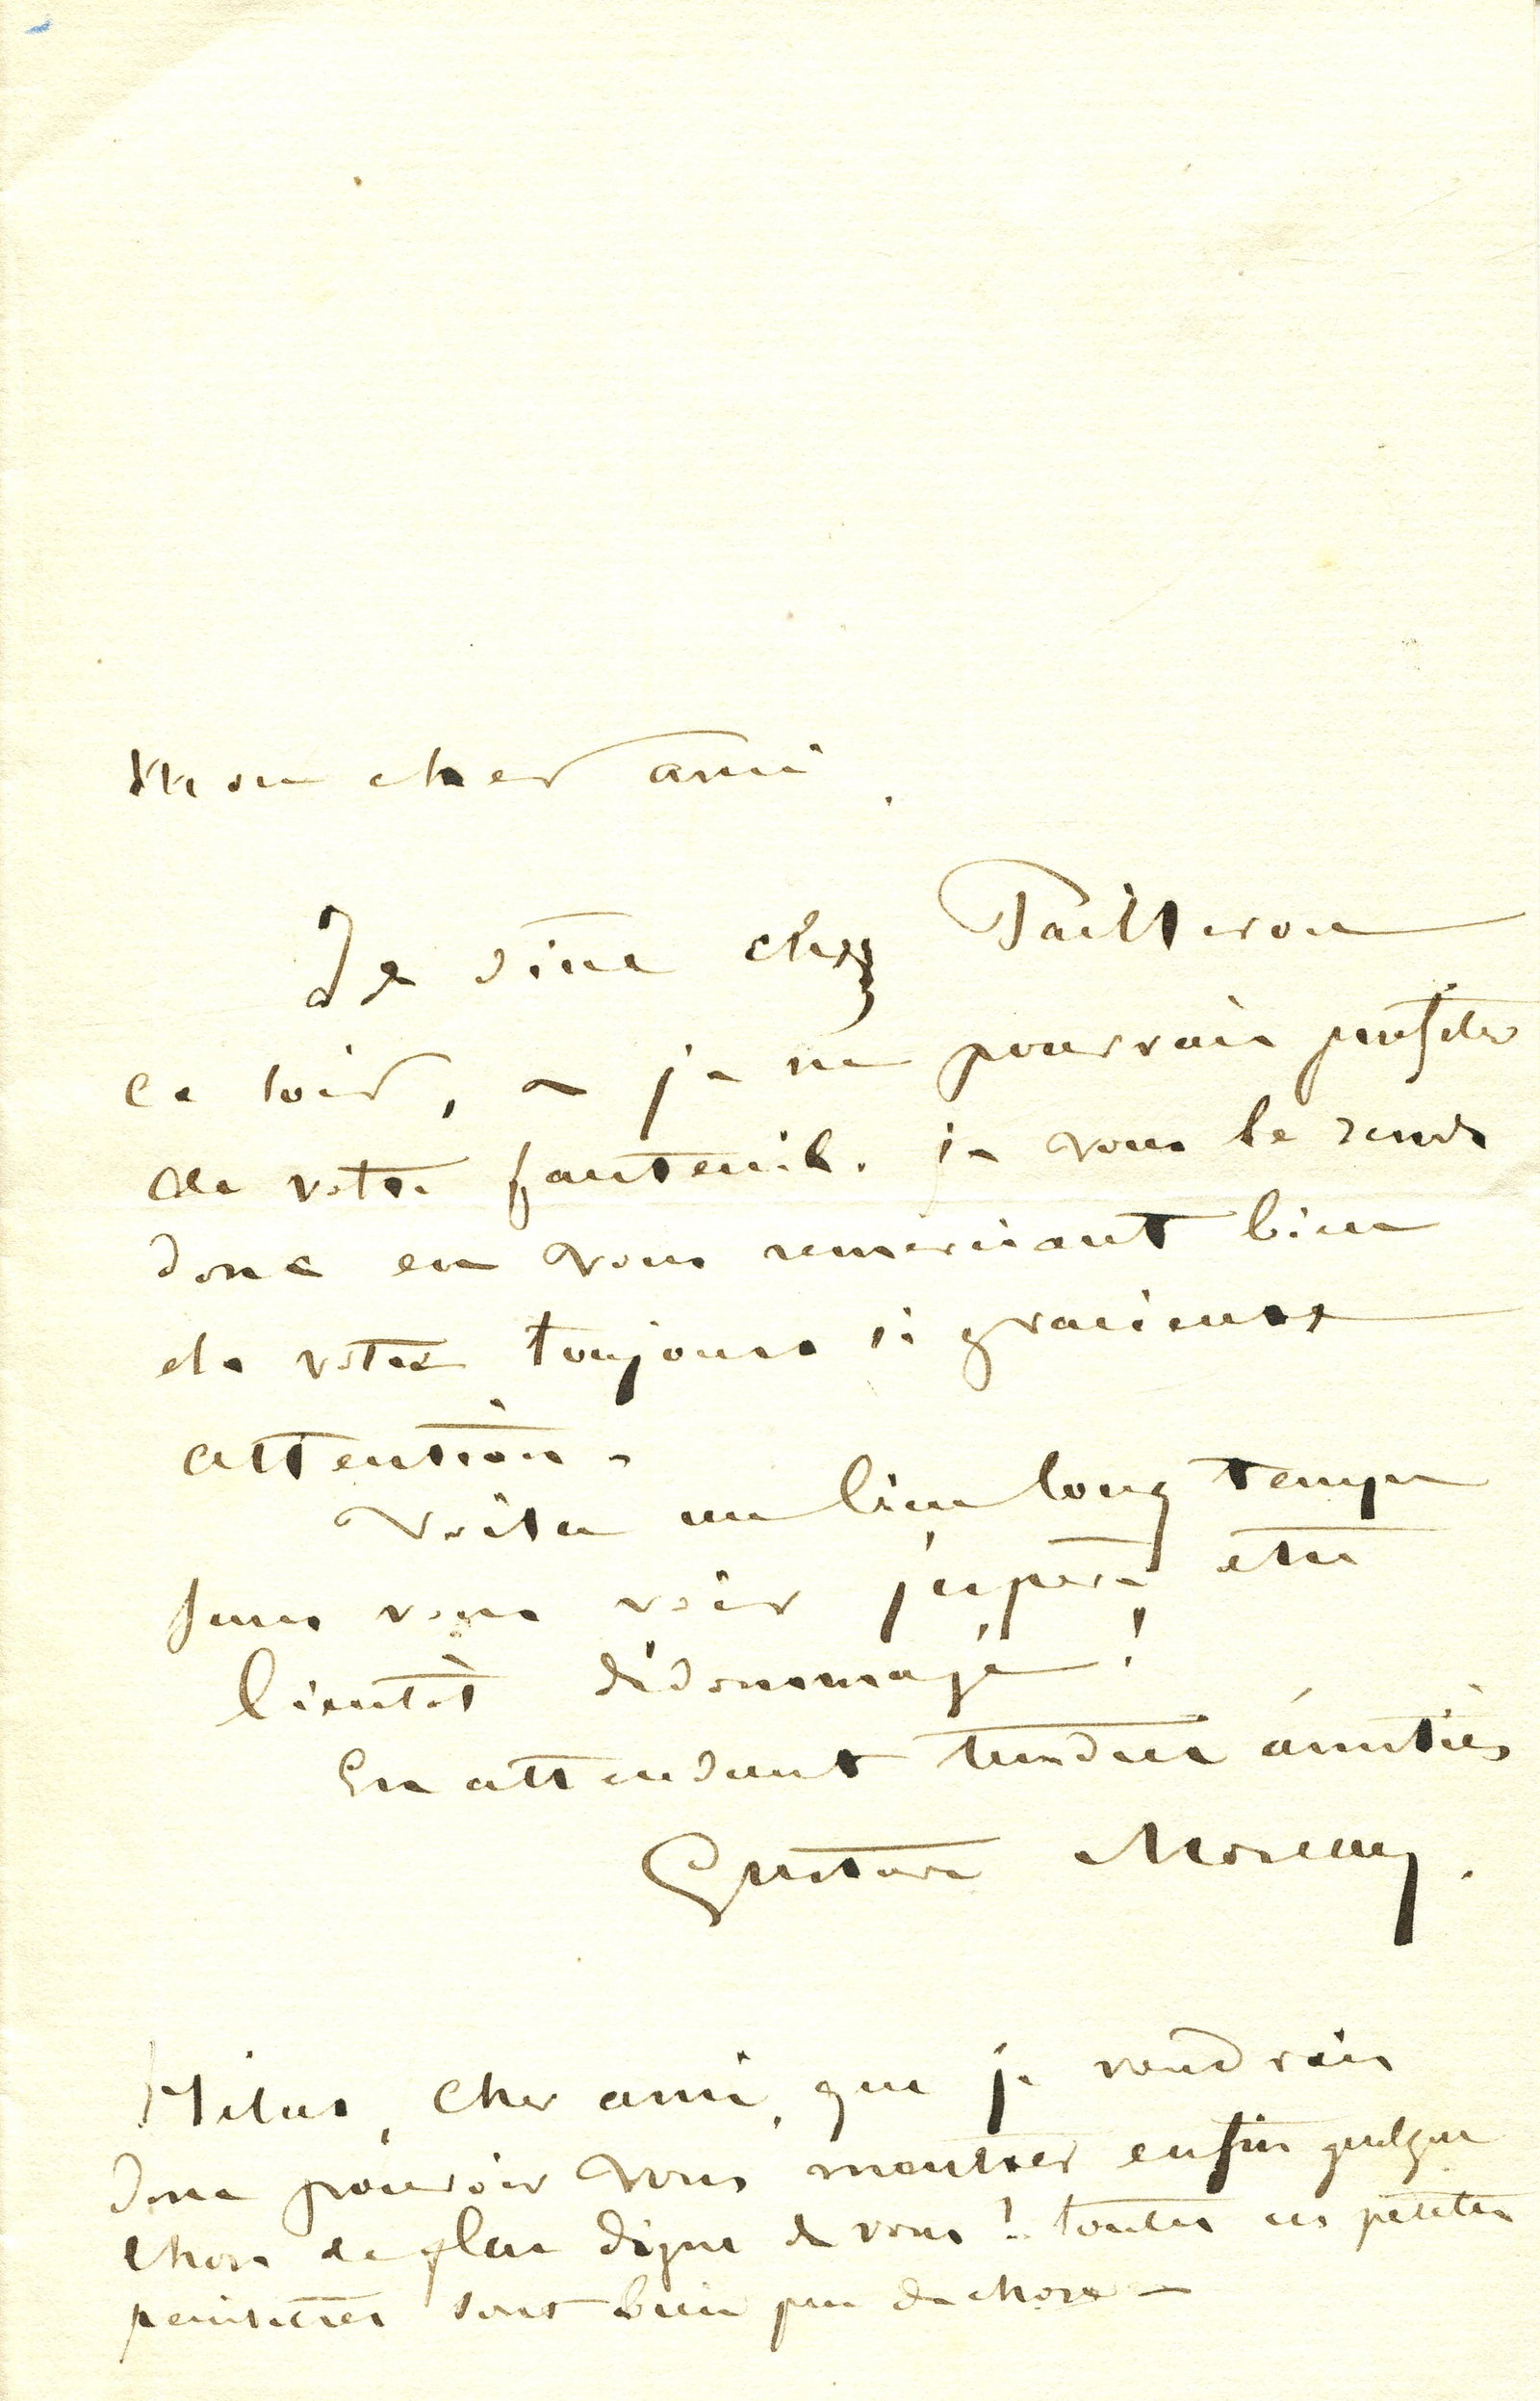 Mon cher ami,
Je dine chez Pailleron
ce soir, je ne pourrais profiter
de votre fauteuil. je vous le rends
donc en vous remerciant bien
de votre toujours si gracieuse
attention.
Voila un bien long temps
sans vous voir j'espère être
bientôt dédommagé !
En attendant tendres amitiés
Gustave Moreau.
Hélas, cher ami, que je voudrais
donc pouvoir vous montrer enfin quelque
chose de plus digne de vous ! toutes ces petites
peintures sont bien peu de chose —